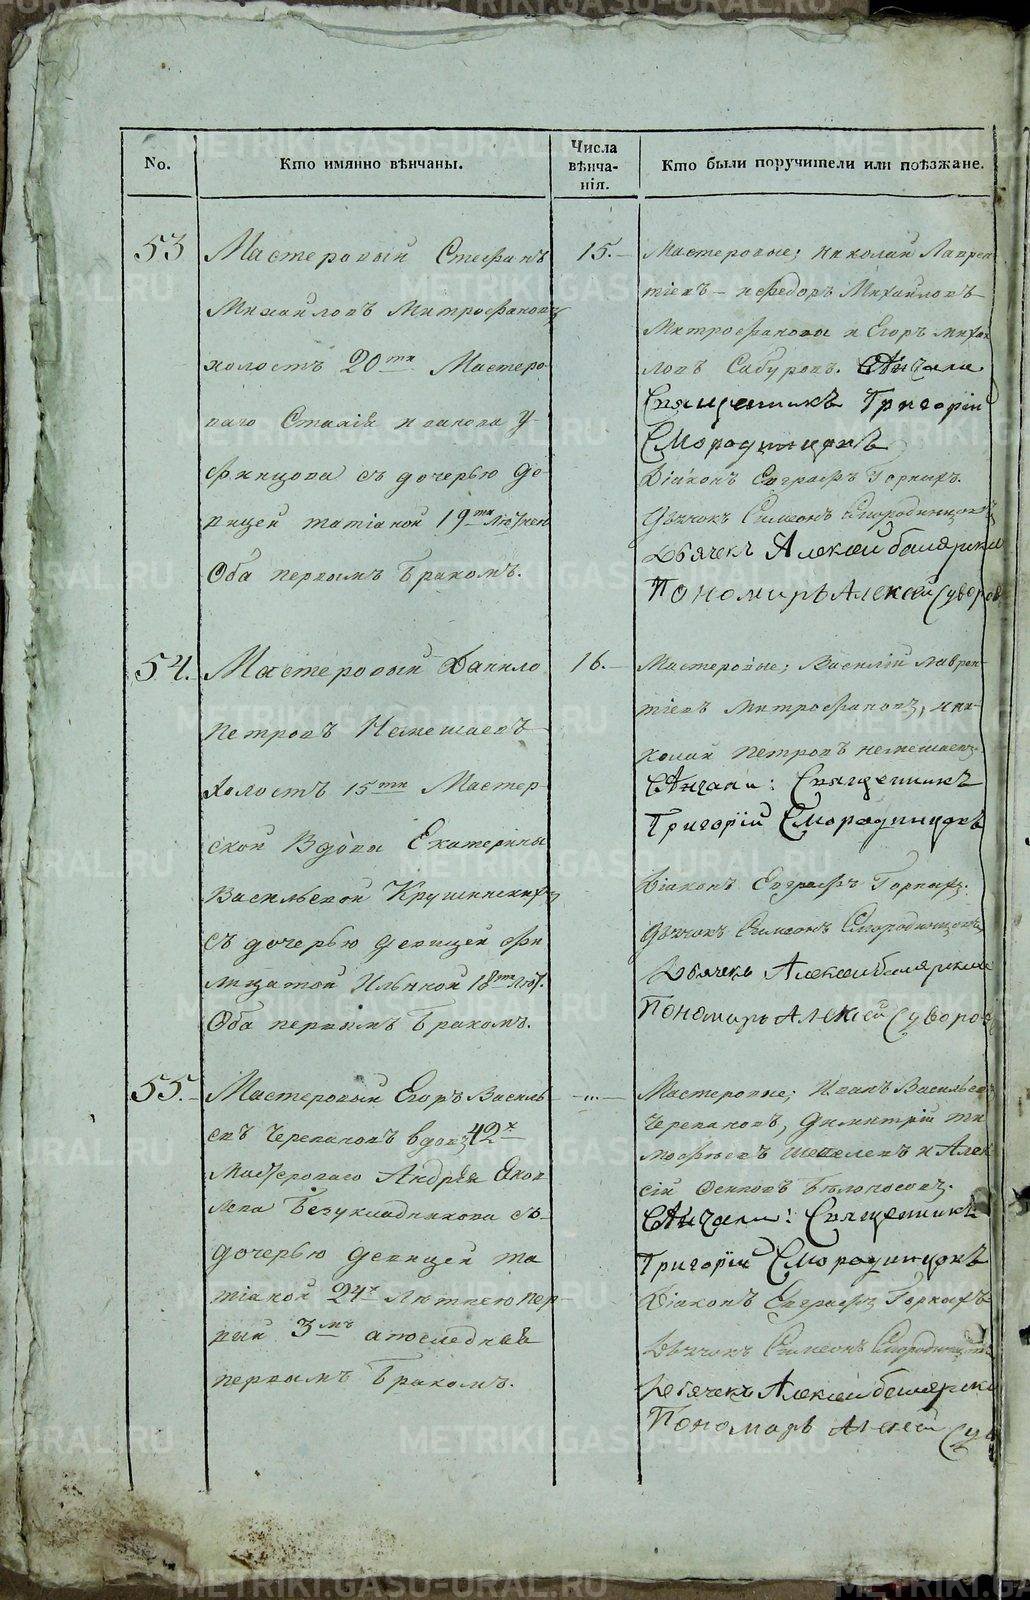 No.
Кто имянно вѣнчаны.
Числа
вѣнча-
нія.
Кто были поручители или поѣзжане.
53
Мастеровый Стефанъ
Михаиловъ Митрофановъ
холостъ 20ти Мастеро
ваго
Иванова У-
финцова съ дочерью де
вицей Татіаной 19ти лѣтней
Оба первымъ бракомъ.
15.
Мастеровые; Николай Лаврен
тіевъ – и Федоръ Михайловъ
Митрофановы и Егоръ Михаи
ловъ Сабуровъ. Вѣнчали
Священникъ Григорій
Смородинцовъ
Діаконъ Евграфъ Горныхъ.
Дьячокъ Симеонъ Смородинцовъ
Дьячекъ Алексей
Пономарь Алексей Суворов
54.
Мастеровый Данило
Петровъ Немешаевъ
Холостъ 15ти Мастер-
ской Вдовы Екатерины
Васильевой Крушинскихъ
съ дочерью девицей Фи
лицатой Ильиной 18ти лѣт.
Оба первымъ бракомъ.
16.
Мастеровые; Василій Лаврен-
тіевъ Митрофановъ, Ни-
колай Петровъ Немешаевъ.
Вѣнчали: Священникъ
Григорій Смородинцовъ
Діаконъ Евграфъ Горныхъ.
Дьячокъ Симеонъ Смородинцовъ
Дьячекъ Алексей
Пономарь Алексей Суворовъ
55.
Мастеровый Егоръ Василь
евъ Черепановъ вдовъ 42х
Мастероваго Андрея Яков
лева Безукладникова съ
дочерью девицей Та
тіаной 24х лѣтнею пер-
вый 3мъ а последняя
первымъ бракомъ.
-„-
Мастеровые; Иванъ Васильевъ
Черепановъ, Димитрій Ти
мофѣевъ Шевелевъ и Алек
сій Осиповъ Бѣлоносовъ.
Вѣнчали: Священникъ
Григорій Смородинцовъ
Діаконъ Евграфъ Горныхъ
Дьячокъ Симеонъ Смородинцовъ
Дьячекъ Алексей
Пономарь Алексей Сув
METRIKI.GASO-URAL.RU